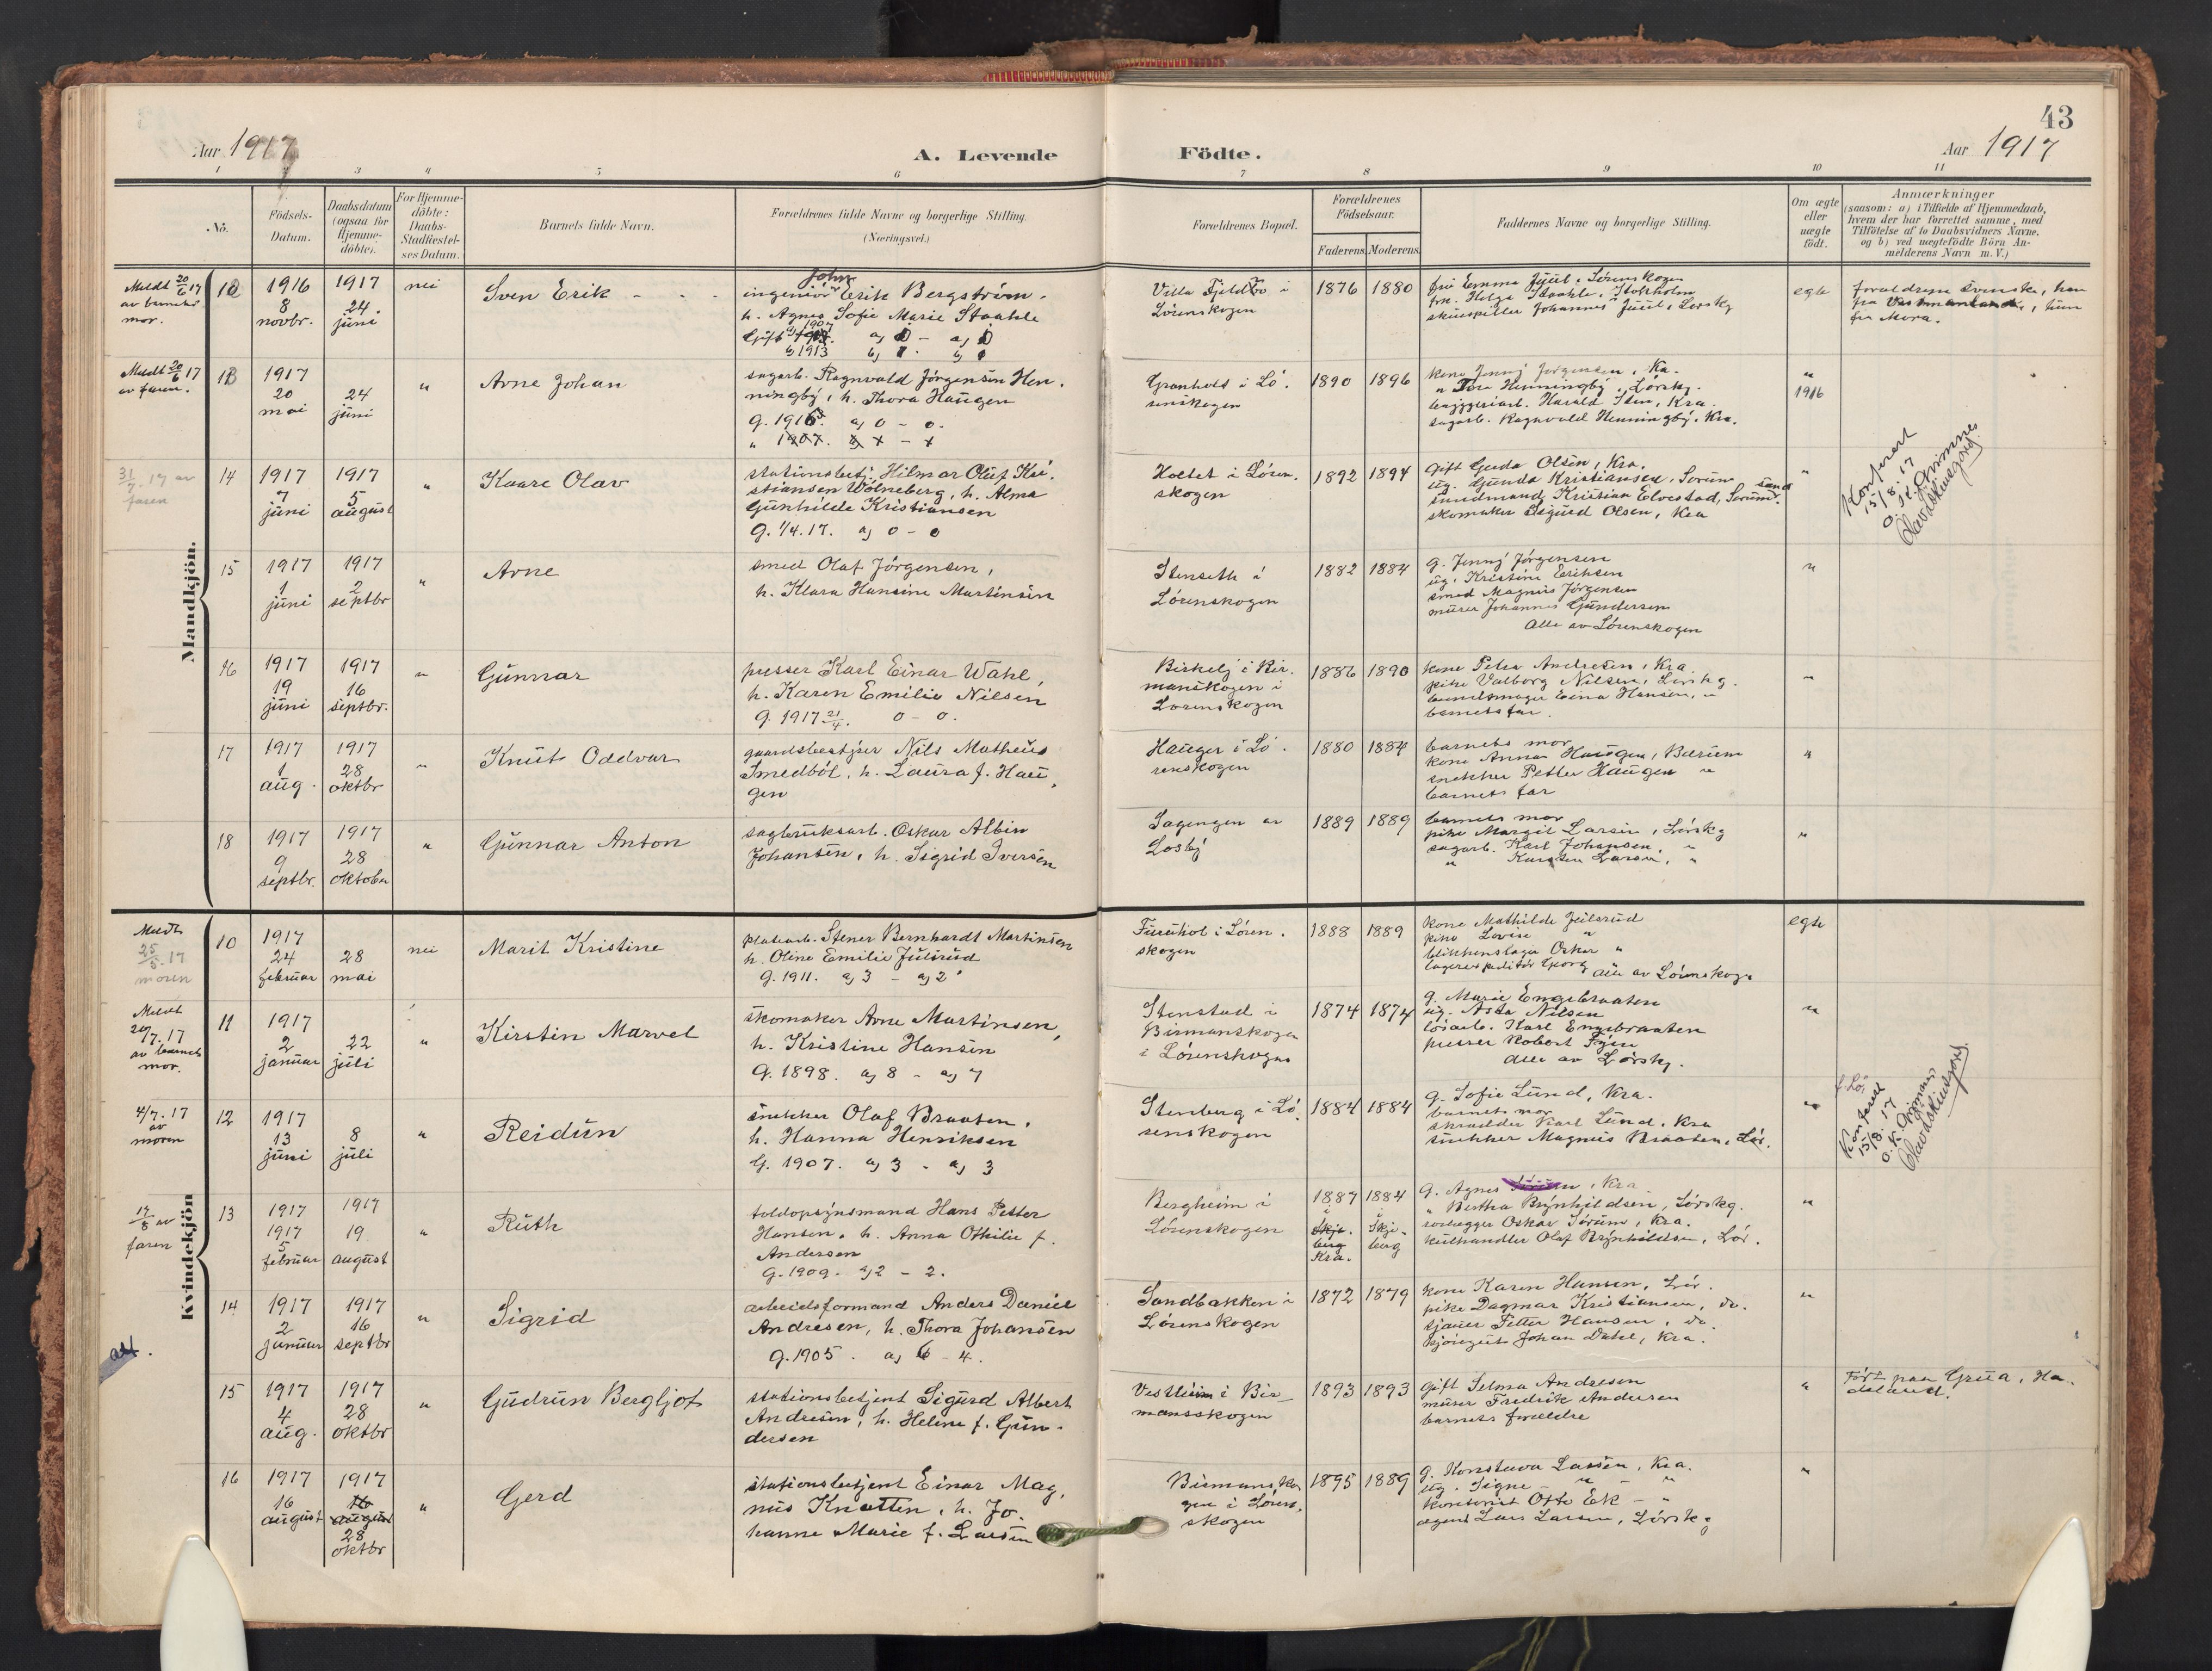 43
Aar 1917
A. Levende
Födte.
Aar 1917
1 2 3 4 5 6 7 8 9 10 11
No.
Födsels-
Datum.
Daabsdatum
(ogsaa for
Hjemme-
döbte).
For Hjemme-
döbte:
Daabs-
Stadfæstel-
ses Datum.
Barnets fulde Navn.
Forældrenes fulde Navne og borgerlige Stilling.
(Næringsvei.)
Forældrenes Bopæl.
Forældrenes
Födselsaar.
Faderens.
Moderens.
Faddernes Navne og borgerlige Stilling.
Om ægte
eller
uægte
födt.
Anmærkninger
(saasom: a) i Tilfælde af Hjemmedaab,
hvem der har forrettet samme, med
Tilföielse af to Daabsvidners Navne.
og b) ved uægtefödte Börn An-
melderens Navn m. V.)
Mandkjön.
Meldt 20/6 17
av barnets
mor.
12
1916
8
novbr.
1917
24
juni
nei
Sven Erik
John
ingeniør Erik Bergström.
h. Agnes Sofie Marie Staahle
Gift a) 1907
b) 1913
Villa Fjeldbo i
Lørenskogen
1876
1880
fru Emma Juul, Lørenskogen
frk. Helga Staahle, Stokholm
Johannes Juul, Lørskg
egte
forældrene svenske, han
fra Vestmanland, hun
fra Mora.
Meldt 20/6 17
av faren.
13
1917
20
mai
24
juni
"
Arne Johan
sagarb. Ragnvald Jørgensen Hen-
ningby, h. Thora Haugen
g. 1916. a) 0 - 0.
" 1907. x - x
Granholt i Lø-
renskogen
1890
1896
kone Jenny Jørgensen, Kra.
" Henningby, Lørskg.
bryggeriarb. Harald Sten, Kra.
sagarb. Ragnvald Henningby, Kra.
"
1916
31/7.17 av
faren
14
1917
7
juni
1917
5
august
"
Kaare Olav
stationsbetj. Hilmar Oluf Kri-
stiansen Wolneberg, h. Alma
Gunhilde Kristiansen
g. 1/4.17. a) 0 - 0
Holtet i Løren-
skogen
1892
1894
gift Gerda Olsen, Kra.
ug. Gunda Kristiansen, Sørum sand
sundmand Kristian Elvestad, Sørums.
skomaker Sigurd Olsen, Kra
"
Konferert
15/8.17
O. K. Grimnes
15
1917
1
juni
1917
2
septbr
"
Arne
smed Olaf Jørgensen,
h. Klara Hansine Martinsen
Stenseth i
Lørenskogen
1882
1884
g. Jenny Jørgensen
ug. Kristine Eriksen
smed Magnus Jørgensen
murer Johannes Gundersen
Alle av Lørenskogen
"
16
1917
19
juni
1917
16
septbr.
"
Gunnar
presser Karl Einar Wahl,
h. Karen Emilie Nilsen
g. 1917 21/4. 0 - 0.
Birkely i Bir-
manskogen i
Lørenskogen
1886
1890
kone Petra Andresen, Kra.
pike Valborg Nilsen, Lørskg.
Einar Hansen, "
barnets far.
"
17
1917
1
aug.
1917
28
oktbr
"
Knut Oddvar
gaardsbestyrer Nils Matheus
Smedbøl, h. Laura f. Hau-
gen
Hauger i Lø-
renskogen
1880
1884
barnets mor
kone Anna Haugen, Bærum
snekker Petter Haugen "
barnets far
"
18
1917
9
septbr.
1917
28
oktober
"
Gunnar Anton
sagbruksarb. Oskar Albin
Johansen, h. Sigrid Iversen
Sagengen av
Losby
1889
1889
barnets mor
pike Margit Larsen, Lørskg
sagarb. Karl Johansen, "
" Karsten Larsen, "
"
Kvindekjön
Meldt
25/5.17
moren
10
1917
24
februar
28
mai
nei
Marit Kristine
platearb. Stener Bernhardt Martinsen
h. Oline Emilie Julsrud
g. 1911. a) 3 - a) 2
Furuhol i Løren-
skogen
1888
1889
kone Mathilde Julsrud
pike Lovise "
blikkenslager Oskar "
lagerexpeditør Georg
Alle av Lørenskogn
egte
Meldt
20/7.17
av barnets
mor.
11
1917
2
januar
22
juli
"
Kirsten Marvel
skomaker Arne Martinsen,
h. Kristine Hansen
g. 1898. a) 8 - a) 7
Stenstad i
Birmanskogen
i Lørenskogen
1874
1874
g. Marie Engebraaten
ug. Asta Nilsen
løsarb. Karl Engebraaten
presser Robert
Alle av Lørskg.
"
4/7.17
av
moren
12
1917
13
juni
8
juli
"
Reidun
snekker Olaf Braaten,
h. Hanna Henriksen
g. 1907. a) 3 - a) 3
Stenberg i Lø-
renskogen
1884
1884
g. Sofie Lund, Kra.
barnets mor
skrædder Karl Lund, Kra
snekker Magnus Braaten, Lør.
"
Konferert
15/8.17
O. K. Grimnes
17/8 av
faren
13
1917
1917
5
februar
1917
19
august
"
Ruth
toldopsynsmand Hans Petter
Hansen, h. Anna Othilie f.
Andersen
g. 1909 - a) 2 - 2.
Bergheim i
Lørenskogen
1887
i
Skje-
berg
Kra.
1884
i
Skje-
berg
g. Agnes Sørum, Kra
" Bertha Brynhildsen, Lørskg.
rørlægger Oskar Sørum, Kra.
kulhandler Olaf Brynhildsen, Lør.
"
14
1917
2
januar
1917
16
septbr
"
Sigrid
arbeidsformand Anders Daniel
Andresen, h. Thora Johansen
g. 1905. a) 6 - 4.
Sandbakken i
Lørenskogen
1872
1879
kone Karen Hansen, Lør.
pike Dagmar Kristiansen, do.
sjauer Petter Hansen, do.
sjøngut Johan Dahl, Kra.
"
15
1917
4
aug.
1917
28
oktbr
"
Gudrun Bergljot
stationsbetjent Sigurd Albert
Andresen, h. Helene f. Gun-
dersen
Vestheim i Bir-
mansskogen
1893
1893
gift Selma Andresen
murer Fredrik Andersen
barnets forældre
"
Født paa Grua, Ha-
deland.
16
1917
16
august
1917
16
august
28
oktbr
"
Gerd
stationsbetjent Einar Mag-
nus Knatten, h. Jo-
hanne Marie f. Larsen
Birmansko-
gen i Løren-
skogen
1895
1889
g. Konstava Larsen, Kra.
ug. Signe " - "
kontorist Otto Ek - "
agent Lars Larsen, Lørskg
"